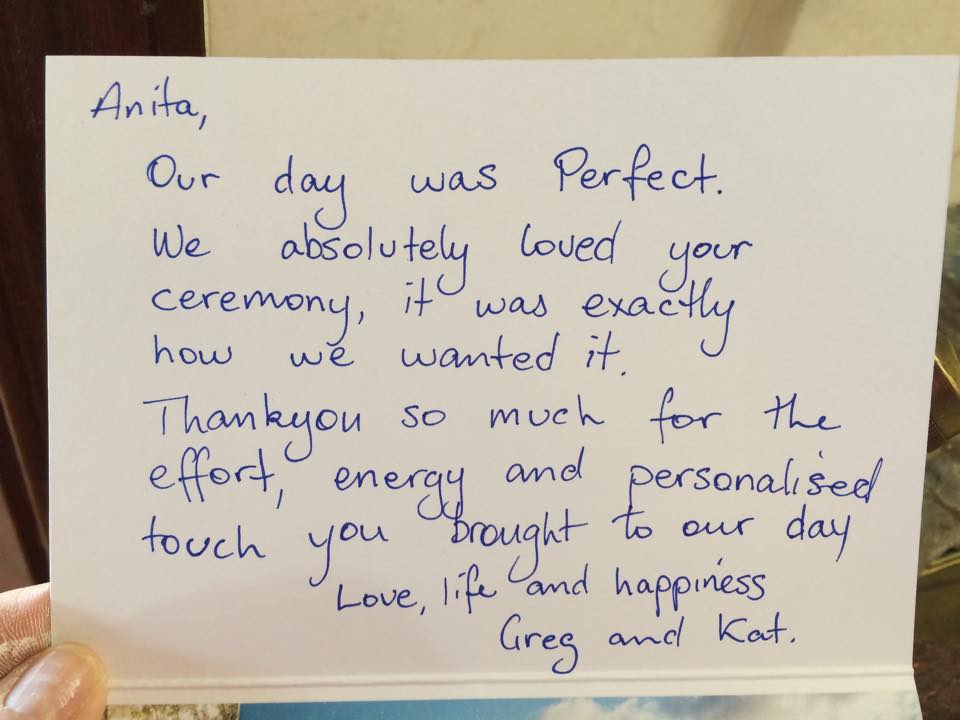 Anita,
Our day was Perfect.
We absolutely loved your
ceremony, it was exactly
how we wanted it.
Thankyou so much for the
effort, energy and personalised
touch you brought to our day
Love, life and happiness
Greg and Kat.